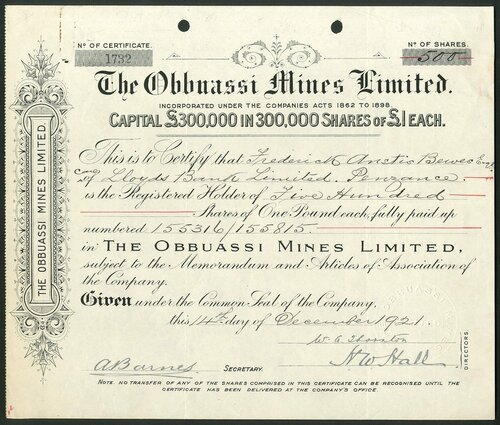 Nº OF CERTIFICATE.
1732
Nº OF SHARES.
500
The Obbuassi Mines Limited.
INCORPORATED UNDER THE COMPANIES ACTS 1862 TO 1898.
CAPITAL £300,000 IN 300,000 SHARES OF £1 EACH.
THE OBBUASSI MINES LIMITED.
This is to Certify that Frederick Anstis Bewes Esqr.
of Lloyds Bank Limited. Penzance.
is the Registered Holder of Five Hundred
Shares of One Pound each, fully paid up
numbered 155316/155815.
in THE OBBUASSI MINES LIMITED,
subject to the Memorandum and Articles of Association of
the Company.
Given under the Common Seal of the Company,
this 14th day of December 1921.
A Barnes SECRETARY.
H W Hall
DIRECTORS
NOTE. NO TRANSFER OF ANY OF THE SHARES COMPRISED IN THIS CERTIFICATE CAN BE RECOGNISED UNTIL THE
CERTIFICATE HAS BEEN DELIVERED AT THE COMPANY'S OFFICE.